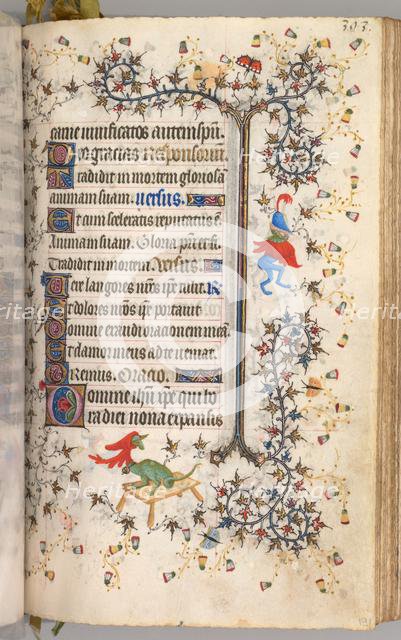 303.
carne vivificatos autem spũ.
Deo gracias Responsoriũ.
Tradidit in mortem gloriosã
animam suam. Versus.
Et cum sceleratis reputatus ẽ.
Animam suam. Gloria patri &
Tradidit in mortem. Versus.
Vere langores nr̃os ipẽ tulit. R
Et dolores nr̃os ipẽ portavit.
Domine exaudi oracionem meã
Et clamor meus ad te veniat.
Oremus. Oracio.
Domine ihũ xp̃e qui tuo
radiei nona expansis
191
Heritage
Heritage
Heritage